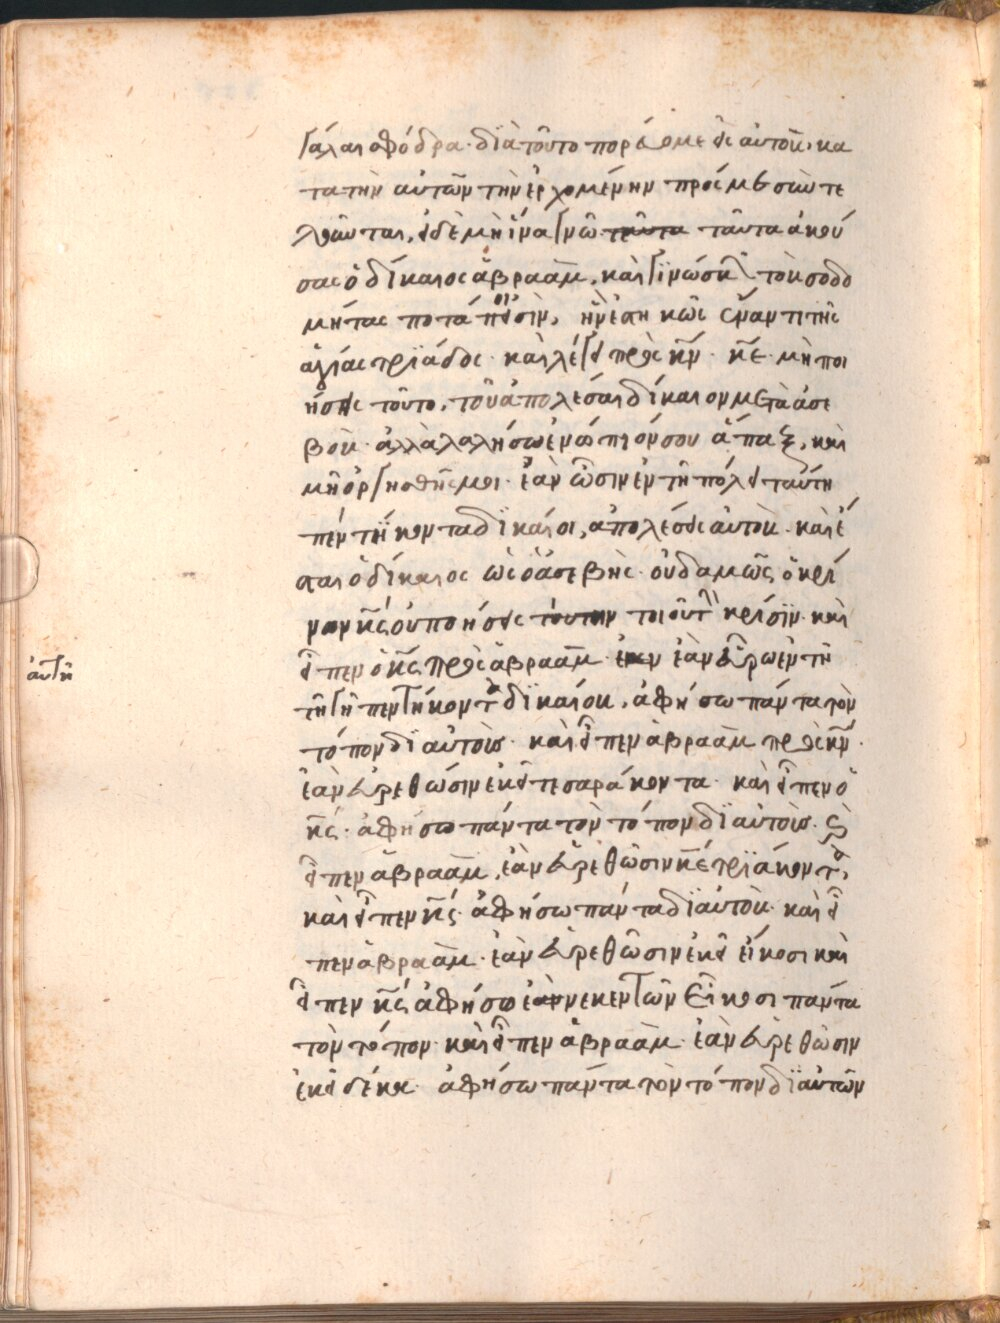 γάλαι σφόδρα· διὰ τοῦτο πορεύομε εἰς αὐτοῦς, κα
τα τὴν αὐτῶν τὴν ἐρχομένην πρός με
λοῦνται, εἰ δὲ μὴ ἵνα γνῶ ταῦτα ἀκού
σας ὁ δίκαιος ἀβραὰμ, καὶ γινώσκει τοὺς σοδο
μήτας ποταποί εἰσὶν, ἐναντι τῆς
ἁγίας τρϊάδος· καὶ λέγει πρὸς κν̅· κε̅· μὴ ποι
ήσεις τοῦτο, τοῦ ἀπολέσαι δίκαιον μετὰ ἀσε
βοῦς· ἀλλὰ λαλήσω ἐνώπιον σου ἅπαξ, καὶ
μὴ ὀργησθῆς μοι· ἐὰν ὦσιν ἐν τῆ πόλει ταύτη
πεντήκοντα δίκαιοι, ἀπολέσεις αὐτοὺς· καὶ ἔ
σται ὁ δίκαιος ὡς ὁ ἀσεβὴς· οὐδαμῶς ὁ κρί
νων κς̅ οὐ ποιήσεις τοιοῦτ κρίσϊν· καὶ
εἶπεν ὁ κς̅ πρὸς ἀβραὰμ· ἐὰν εὕρω ἐν τῆ
αὐτῆ
τῆ γῆ πεντήκοντα δϊκαίους, ἀφήσω πάντα τὸν
τόπον δι αὐτοὺς· καὶ εἶπεν ἀβραὰμ πρὸς κν̅·
ἐὰν εὑρεθώσιν ἐκεῖ τεσαράκοντα· καὶ εἶπεν ὁ
κς̅· ἀφήσω πάντα τὸν τόπον δϊ αὐτοὺς· ϗ
εἶπεν ἀβραὰμ, ἐὰν εὑρεθῶσιν κεῖ τρϊάκοντα,
καὶ εἶπεν κς̅· ἀφήσω πάντα δϊ αὐτοὺς· καὶ εἶ
πεν ἀβραὰμ· ἐὰν εὑρεθῶσιν ἐκεῖ εἴκοσι καὶ
εἶπεν κς̅ ἀφήσω ἕνεκεν τῶν εἴκοσι πάντα
τὸν τόπον· καὶ εἶπεν ἀβραὰμ· ἐὰν εὑρεθὼσιν
ἐκεῖ δέκα· ἀφήσω πάντα τὸν τόπον δϊ αὐτῶν